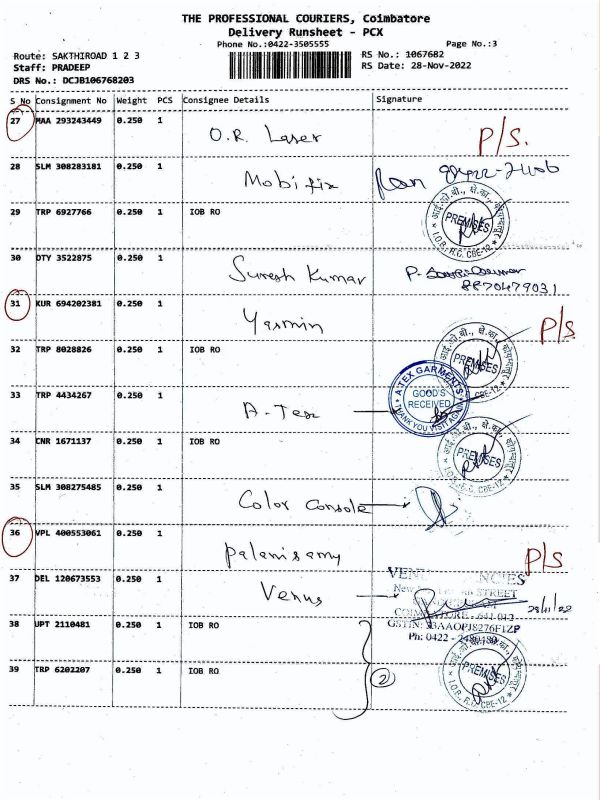 THE PROFESSIONAL COURIERS, Coimbatore
Delivery Runsheet - PCX
Phone No.:0422-3505555
Page No.:3
Route: SAKTHIROAD 1 2 3
RS No.: 1067682
Staff: PRADEEP
RS Date: 28-Nov-2022
DRS No.: DCJB106768203
S No Consignment No Weight PCS Consignee Details Signature
27 MAA 293243449 0.250 1
O.R. Laser P/S.
28 SLM 308283181 0.250 1
Mobifix
29 TRP 6927766 0.250 1 IOB RO
PREMISES
I.O.B., R.O. CBE-12
30 DTY 3522875 0.250 1
Suresh Kumar
8870479031
31 KUR 694202381 0.250 1
Yasmin P/S
32 TRP 8028826 0.250 1 IOB RO
PREMISES
CBE-12
33 TRP 4434267 0.250 1
A-Tex
A-TEX GARMENTS
GOOD'S
RECEIVED
THANK YOU VISIT AGAIN
34 CNR 1671137 0.250 1 IOB RO
PREMISES
I.O.B., R.O. CBE-12
35 SLM 308275485 0.250 1
Color Console
36 VPL 400553061 0.250 1
Palanisamy P/S
37 DEL 120673553 0.250 1
Venus
STREET
641 012
28/11/22
GSTIN: 33AAOPJ8276F1ZP
Ph: 0422 -
38 UPT 2110481 0.250 1 IOB RO
39 TRP 6202207 0.250 1 IOB RO
2
PREMISES
I.O.B., R.O. CBE-12